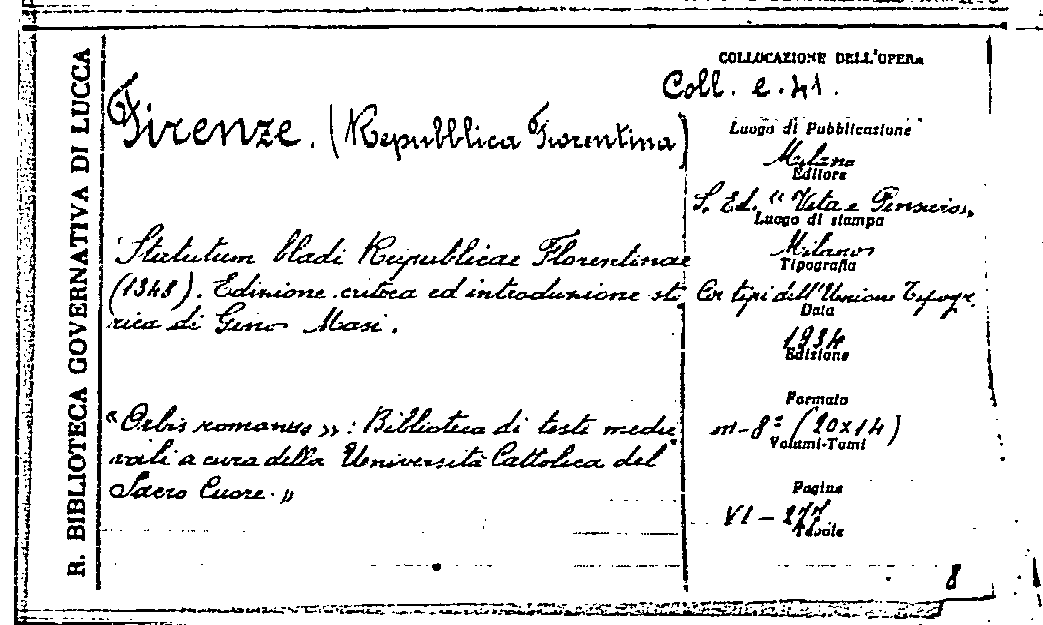 R. BIBLIOTECA GOVERNATIVA DI LUCCA
Firenze. (Repubblica Fiorentina)
Statutum bladi Reipublicae Florentinae
(1348). Edizione critica ed introduzione sto
rica di Gino Masi.
"Orbis romanus": Biblioteca di testi medie
vali a cura della Università Cattolica del
Sacro Cuore."
COLLOCAZIONE DELL'OPERA
Coll. e. 41.
Luogo di Pubblicazione
Milano
Editore
S. Ed. "Vita e Pensiero"
Luogo di stampa
Milano
Tipografia
Coi tipi dell'Unione Tipogr.
Data
1934
Edizione
Formato
in-8° (20x14)
Volumi-Tomi
Pagine
VI - 277
Tavole
8